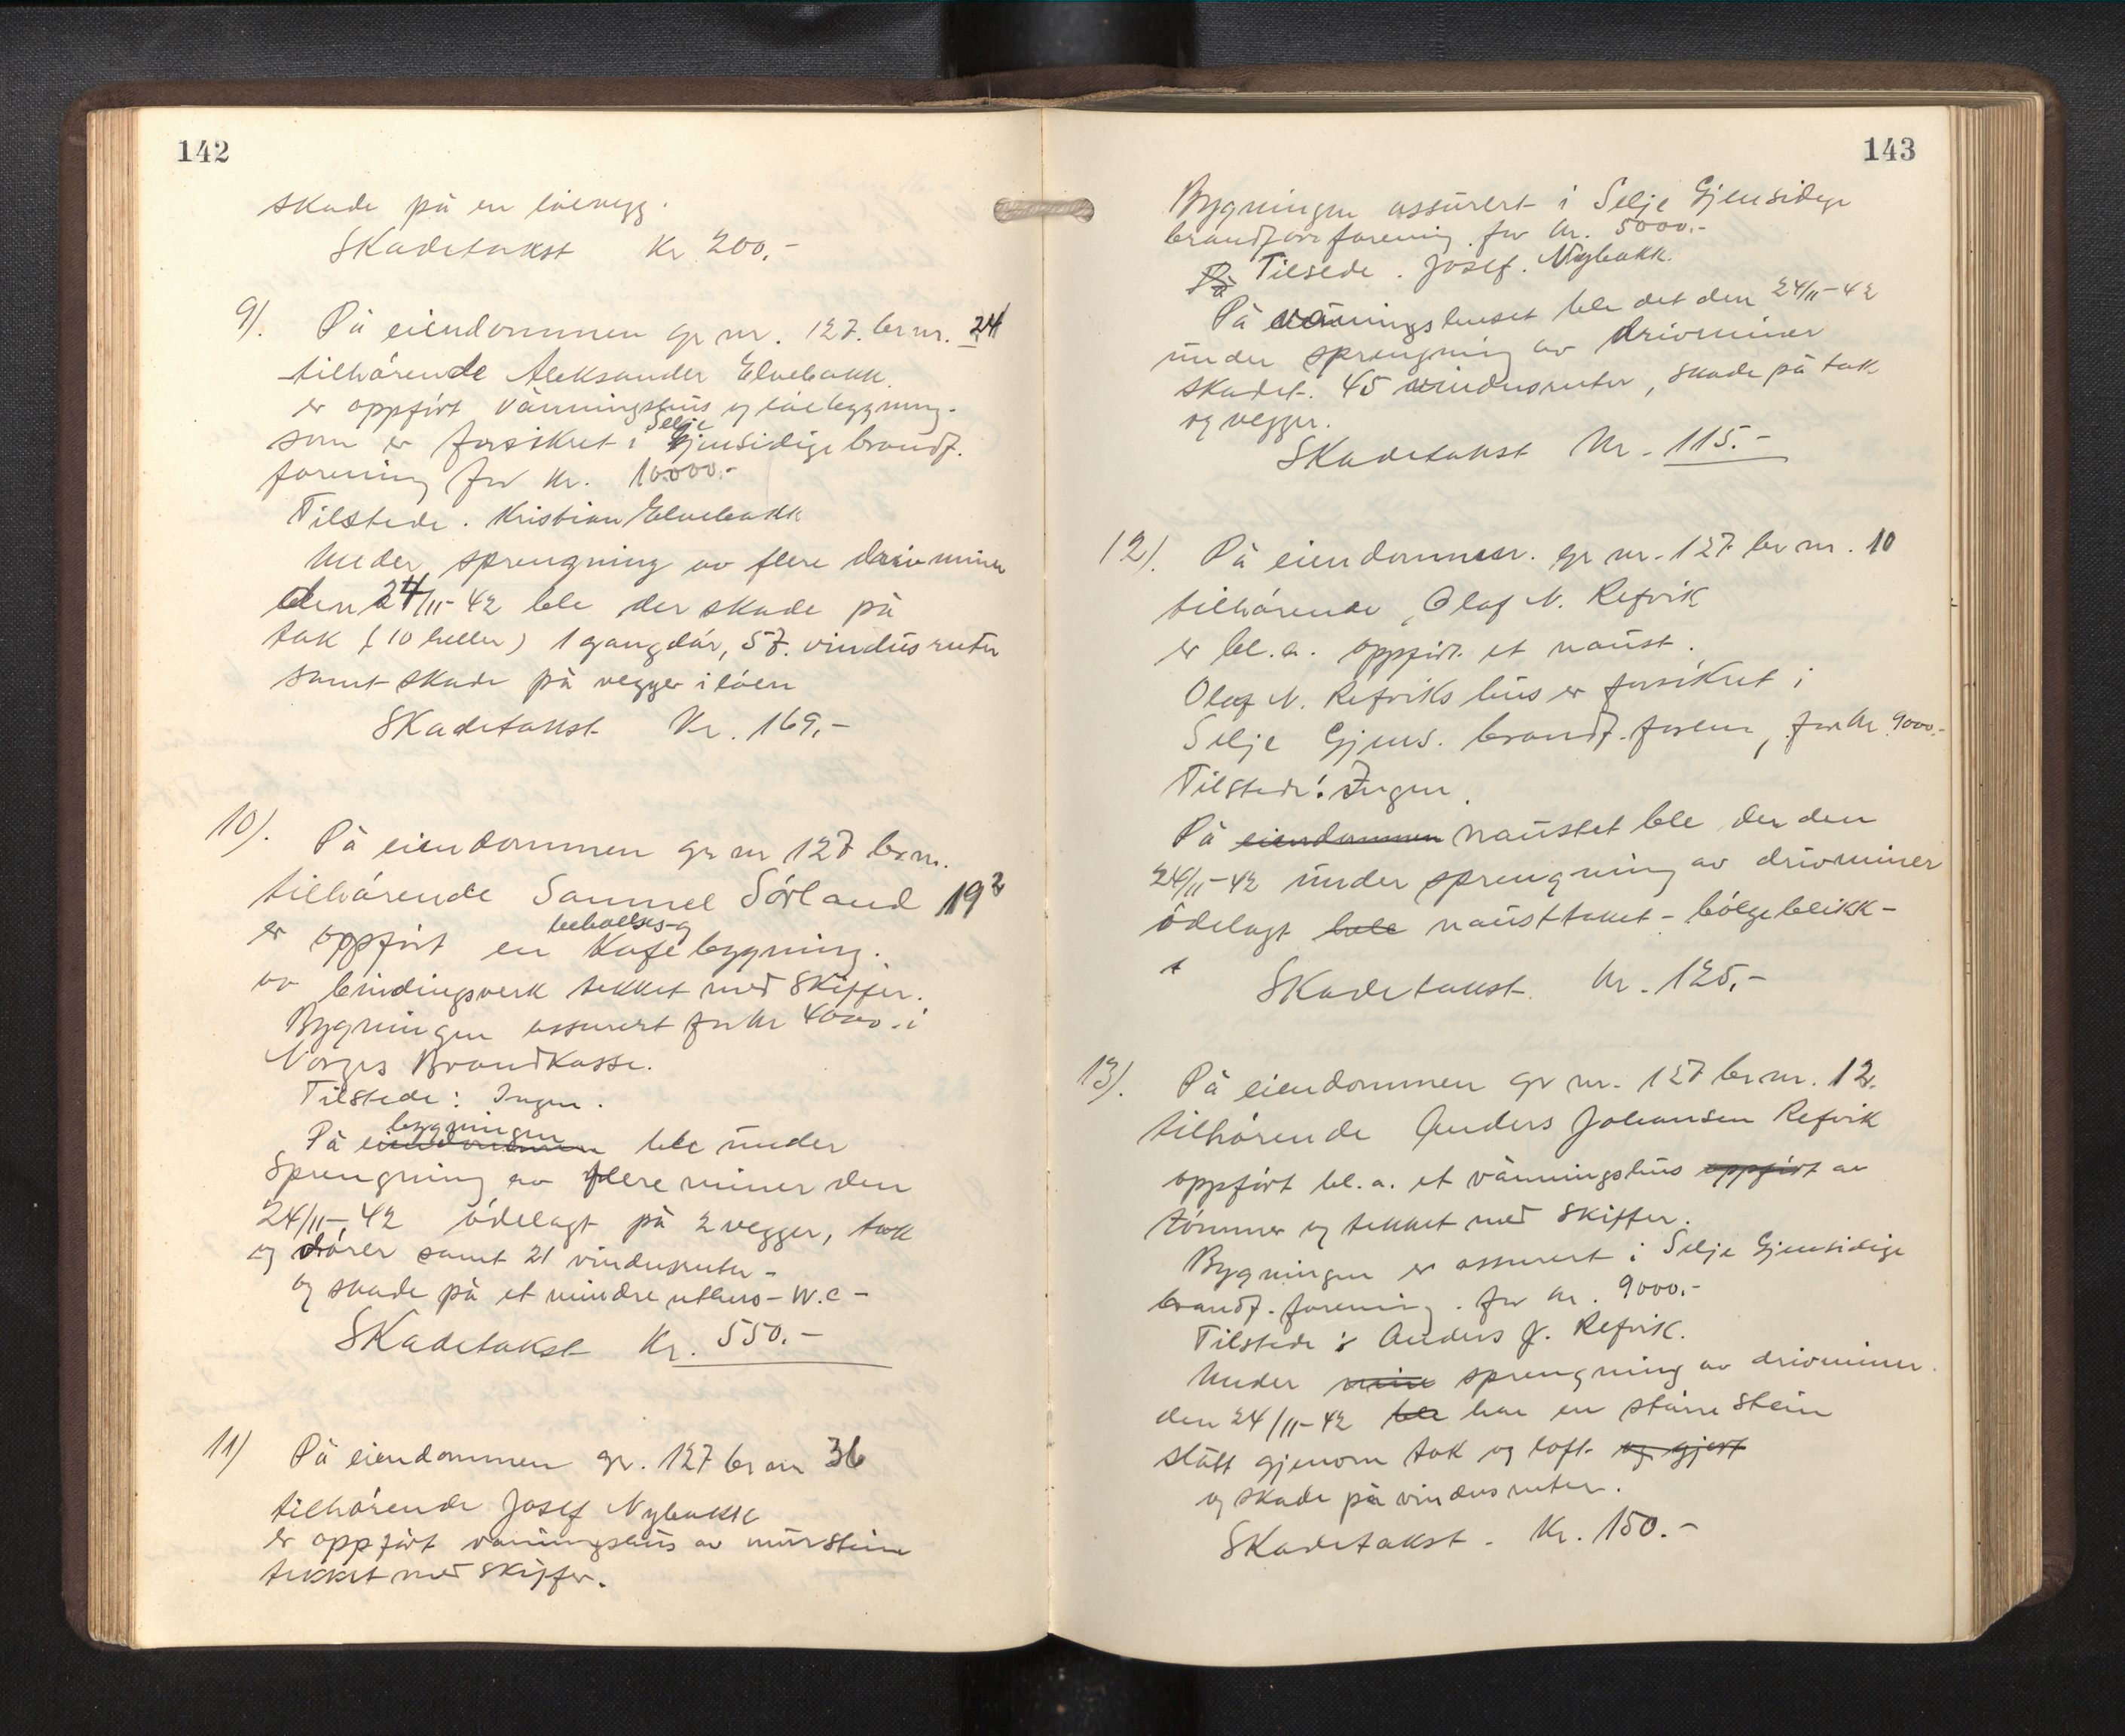 142
skade på en lóevegg.
Skadetakst Kr 200,-
9). På eiendommen gr nr. 127. br nr. 24
tilhórende Aleksander Elvebakk.
er oppfórt våningshus og lóebygning.
som er forsikret i Selje Gjensidige brandf.
forening for kr. 10000.-
Tilstede. Kristian Elvebakk
Under sprengning av flere drivminer
den 24/11-42 ble der skade på
tak (10 heller) 1 gangdór, 57. vindusruter
samt skade på vegger i lóen
Skadetakst Kr. 169,-
10). På eiendommen gr nr 127 br nr.
tilhórende Samuel Sórland 19²
er oppfórt en beboelses-og Kafebygning.
av bindingsverk tekket med skiffer.
Bygningen assurert for kr 4000.- i
Norges Brandkasse.
Tilstede: Ingen.
På eiendommen bygningen ble under
Sprengning av flere miner den
24/11-42 ódelagt på 2 vegger, tak
og dórer samt 21 vindusruter -
og skade på et mindre uthus - W.c -
Skadetakst Kr. 550.-
11) På eiendommen gr. 127 br nr 36
tilhórende Josef Nybakk
er oppfórt våningshus av mürstein
tekket med skiffer.
143
Bygningen assürert i Selje Gjensidige
brandforsforening. for kr. 5000.-
På Tilsede. Josef. Nybakk.
På våningshuset ble det den 24/11-42
ünder sprengning av drivminer
skadet. 45 vindusruter, skade på tak
og vegger.
Skadetakst Kr. 115.-
12). På eiendommen. gr nr. 127 br nr. 10
tilhórende, Olaf N. Refvik
er bl.a. oppfórt et naüst.
Olaf N. Refviks hüs er forsikret i
Selje Gjens. brandf. foren, for kr 9000.-
Tilstede: Ingen.
På eiendommen naüstet ble der den
24/11-42 ünder sprengning av drivminer
ódelagt hele naüsttaket - bólgeblikk -
Skadetakst. kr. 125,-
13). På eiendommen gr nr. 127 br nr. 12.
tilhórende Anders Johansen Refvik
oppfórt bl.a. et våningshüs oppfórt av
tómmer og tekket med skiffer.
Bygningen er assurert i Selje Gjensidige
brandf. forening. for kr. 9000.-
Tilstede: Anders J. Refvik.
Under mine sprengning av drivminer.
den 24/11-42 ble har en stórre stein
slått gjenom tak og loft. og gjort
og skade på vindusruter.
Skadetakst. Kr. 150.-